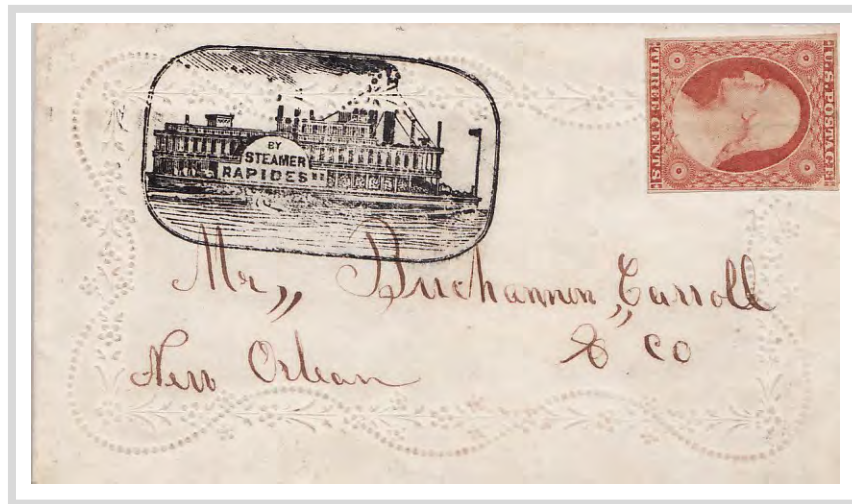 BY
STEAMER
RAPIDES
U.S. POSTAGE
THREE CENTS
Mr,, Buchannon,, Carroll
& Co
New Orlean